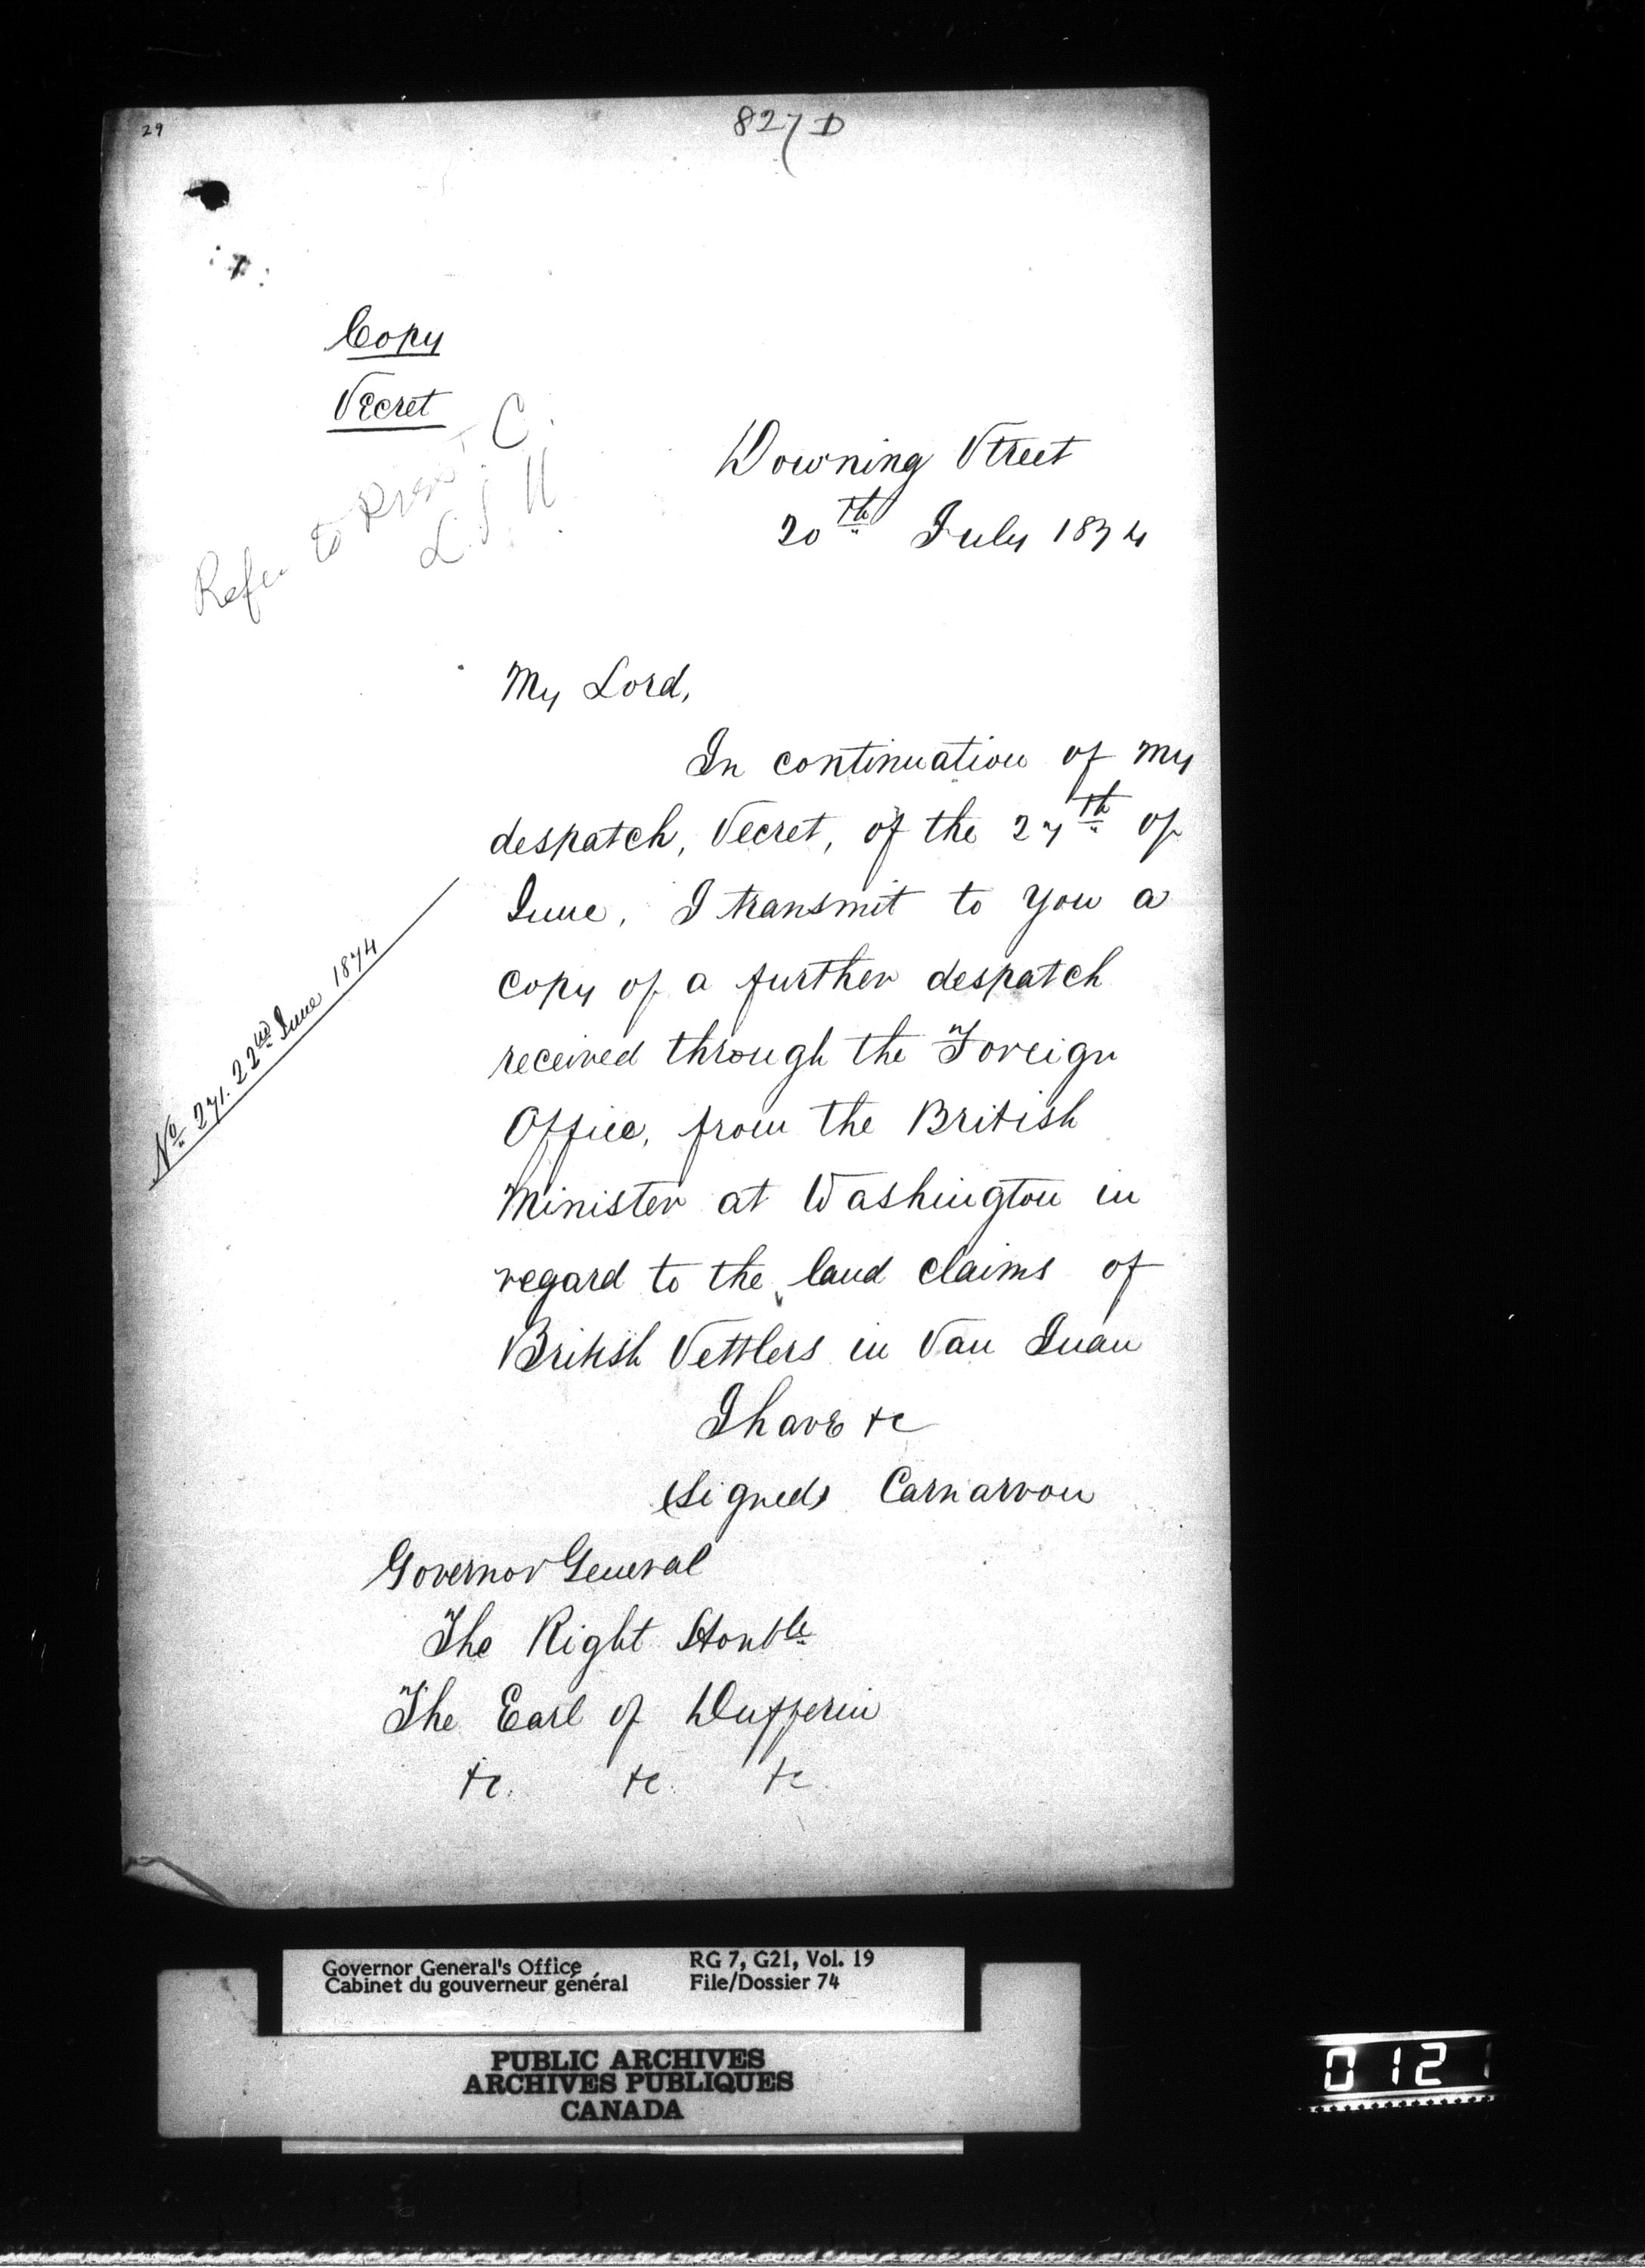 29
827 D
Copy
Secret
Refer to
Downing Street
20th July 1874
My Lord,
In continuation of my
despatch, Secret, of the 27th of
June, I transmit to you a
No. 271. 22nd June 1874
copy of a further despatch
received through the Foreign
Office, from the British
Minister at Washington in
regard to the land claims of
British Settlers in San Juan
I have &c
(Signed) Carnarvon
Governor General
The Right Honble
The Earl of Dufferin
&c. &c. &c.
Governor General's Office RG 7, G21, Vol. 19
Cabinet du gouverneur général File/Dossier 74
PUBLIC ARCHIVES
ARCHIVES PUBLIQUES
CANADA
0121